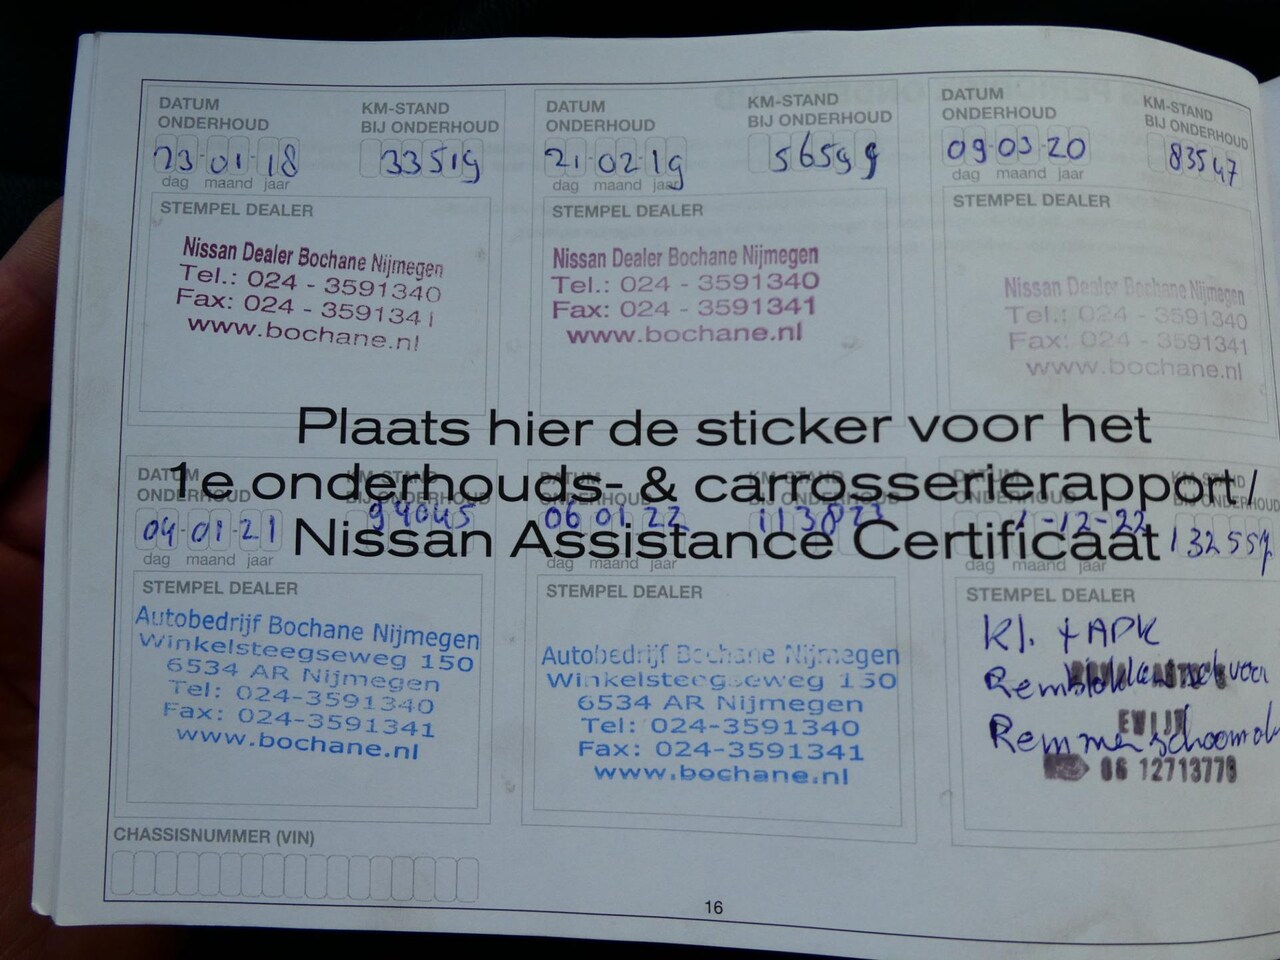 DATUM
ONDERHOUD
KM-STAND
BIJ ONDERHOUD
23-01-18
33519
dag maand jaar
STEMPEL DEALER
Nissan Dealer Bochane Nijmegen
Tel.: 024 - 3591340
Fax: 024 - 3591341
www.bochane.nl
DATUM
ONDERHOUD
KM-STAND
BIJ ONDERHOUD
21-02-19
56599
dag maand jaar
STEMPEL DEALER
Nissan Dealer Bochane Nijmegen
Tel.: 024 - 3591340
Fax: 024 - 3591341
www.bochane.nl
DATUM
ONDERHOUD
KM-STAND
BIJ ONDERHOUD
09-03-20
83547
dag maand jaar
STEMPEL DEALER
Nissan Dealer Bochane Nijmegen
Tel.: 024 - 3591340
Fax: 024 - 3591341
www.bochane.nl
Plaats hier de sticker voor het
1e onderhouds- & carrosserierapport/
Nissan Assistance Certificaat
DATUM
ONDERHOUD
KM-STAND
BIJ ONDERHOUD
04-01-21
94045
dag maand jaar
STEMPEL DEALER
Autobedrijf Bochane Nijmegen
Winkelsteegseweg 150
6534 AR Nijmegen
Tel: 024-3591340
Fax: 024-3591341
www.bochane.nl
DATUM
ONDERHOUD
KM-STAND
BIJ ONDERHOUD
06 01 22
dag maand jaar
STEMPEL DEALER
Autobedrijf Bochane Nijmegen
Winkelsteegseweg 150
6534 AR Nijmegen
Tel: 024-3591340
Fax: 024-3591341
www.bochane.nl
DATUM
ONDERHOUD
KM-STAND
BIJ ONDERHOUD
1-12-22
132557
dag maand jaar
STEMPEL DEALER
Kl. + APK
voor
EWIJK
06 12713779
CHASSISNUMMER (VIN)
16